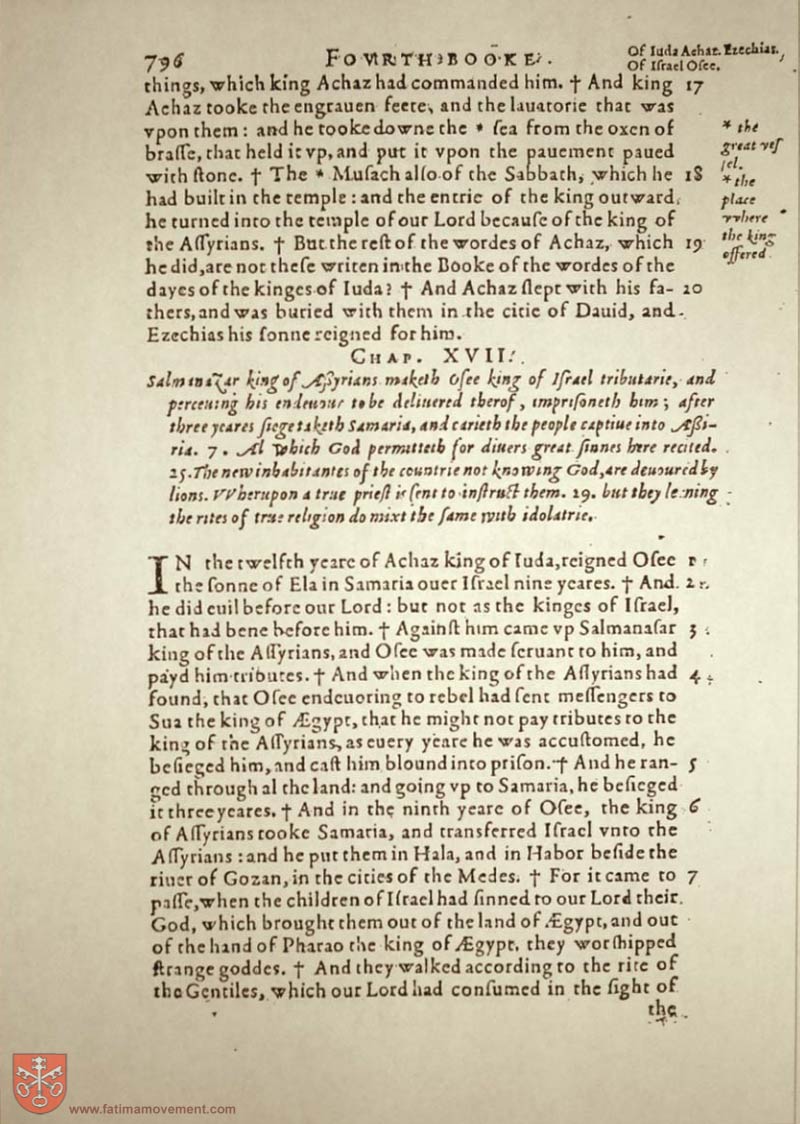 796 FOVRTH BOOKE. Of Iuda Achaz. Ezechias.
Of Iſrael Oſee.
things, which king Achaz had commanded him. † And king 17
Achaz tooke the engrauen feete, and the lauatorie that was
vpon them: and he tooke downe the * ſea from the oxen of
braſſe, that held it vp, and put it vpon the pauement paued
with ſtone. † The * Muſach alſo of the Sabbath, which he 18
had built in the temple: and the entrie of the king outward
he turned into the temple of our Lord becauſe of the king of
the Aſſyrians. † But the reſt of the wordes of Achaz, which 19
he did, are not theſe writen in the Booke of the wordes of the
dayes of the kinges of Iuda? † And Achaz ſlept with his fa- 20
thers, and was buried with them in the citie of Dauid, and
Ezechias his ſonne reigned for him.
* the
great veſ
ſel.
* the
place
vvhere
the king
offered.
CHAP. XVII.
Salmanazar king of Aſſyrians maketh Oſee king of Iſrael tributarie, and
perceuing his endeuour to be deliuered therof, impriſoneth him; after
three yeares ſiege taketh Samaria, and carieth the people captiue into Aſſi-
ria. 7. Al which God permitteth for diuers great ſinnes here recited.
25. The new inhabitantes of the countrie not knowing God, are deuoured by
lions. VVherupon a true prieſt is ſent to inſtruct them. 29. but they lerning
the rites of true religion do mixt the ſame with idolatrie.
IN the twelfth yeare of Achaz king of Iuda, reigned Oſee 1
the ſonne of Ela in Samaria ouer Iſrael nine yeares. † And 2
he did euil before our Lord: but not as the kinges of Iſrael,
that had bene before him. † Againſt him came vp Salmanaſar 3
king of the Aſſyrians, and Oſee was made ſeruant to him, and
payd him tributes. † And when the king of the Aſſyrians had 4
found, that Oſee endeuoring to rebel had ſent meſſengers to
Sua the king of Ægypt, that he might not pay tributes to the
king of the Aſſyrians, as euery yeare he was accuſtomed, he
beſieged him, and caſt him blound into priſon. † And he ran- 5
ged through al the land: and going vp to Samaria, he beſieged
it three yeares. † And in the ninth yeare of Oſee, the king 6
of Aſſyrians tooke Samaria, and transferred Iſrael vnto the
Aſſyrians: and he put them in Hala, and in Habor beſide the
riuer of Gozan, in the cities of the Medes. † For it came to 7
paſſe, when the children of Iſrael had ſinned to our Lord their
God, which brought them out of the land of Ægypt, and out
of the hand of Pharao the king of Ægypt, they worſhipped
ſtrange goddes. † And they walked according to the rite of
the Gentiles, which our Lord had conſumed in the ſight of
the
www.fatimamovement.com